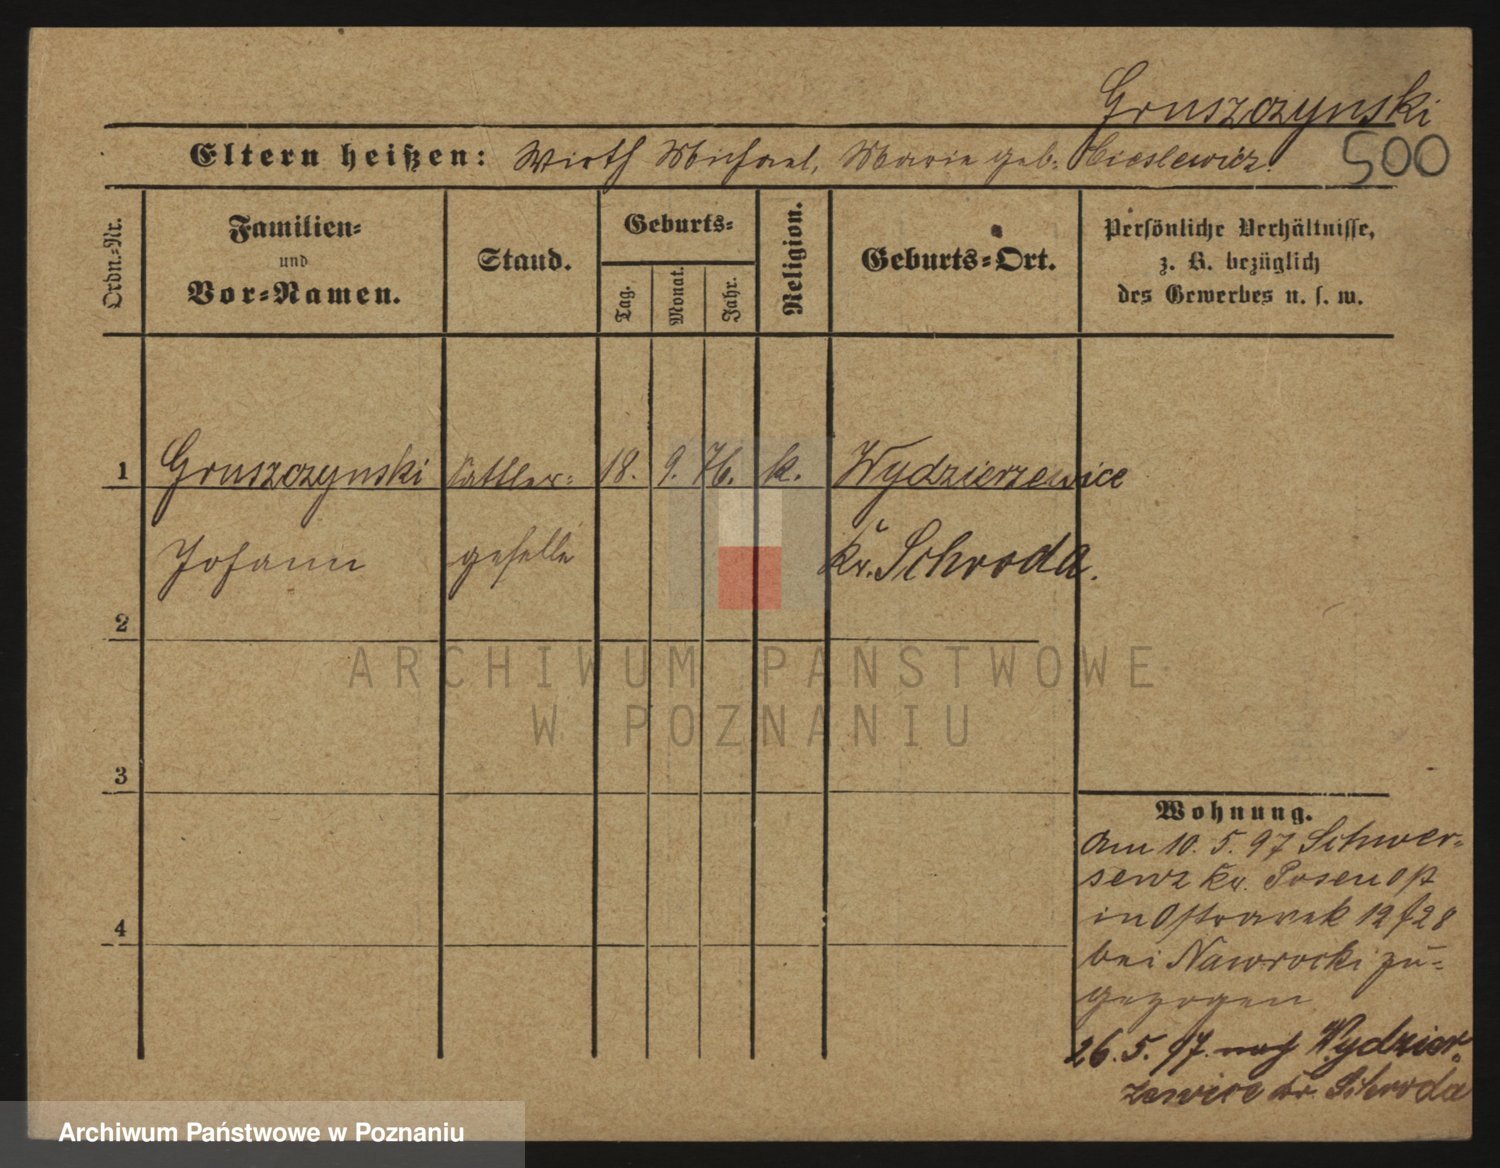 Gruszczynski
500
Eltern heißen: Wirth Michael, Marie geb. Cieslewicz.
Ordn.-Nr.
Familien-
und
Vor-Namen.
Stand.
Geburts-
Tag.
Monat.
Jahr.
Religion.
Geburts-Ort.
Persönliche Verhältnisse,
z. B. bezüglich
des Gewerbes u. s. w.
1 Gruszczynski Sattler- 18. 9. 76. k. Wydzierzewice
Johann geselle Kr. Schroda.
2
ARCHIWUM PAŃSTWOWE
W POZNANIU
3
Wohnung.
Am 10. 5. 97 Schwer-
senz Kr. Posen Ost
in Ostrowek 12/28
bei Nawrocki zu-
gezogen
4
26. 5. 97. nach Wydzier-
zewice Kr. Schroda
Archiwum Państwowe w Poznaniu